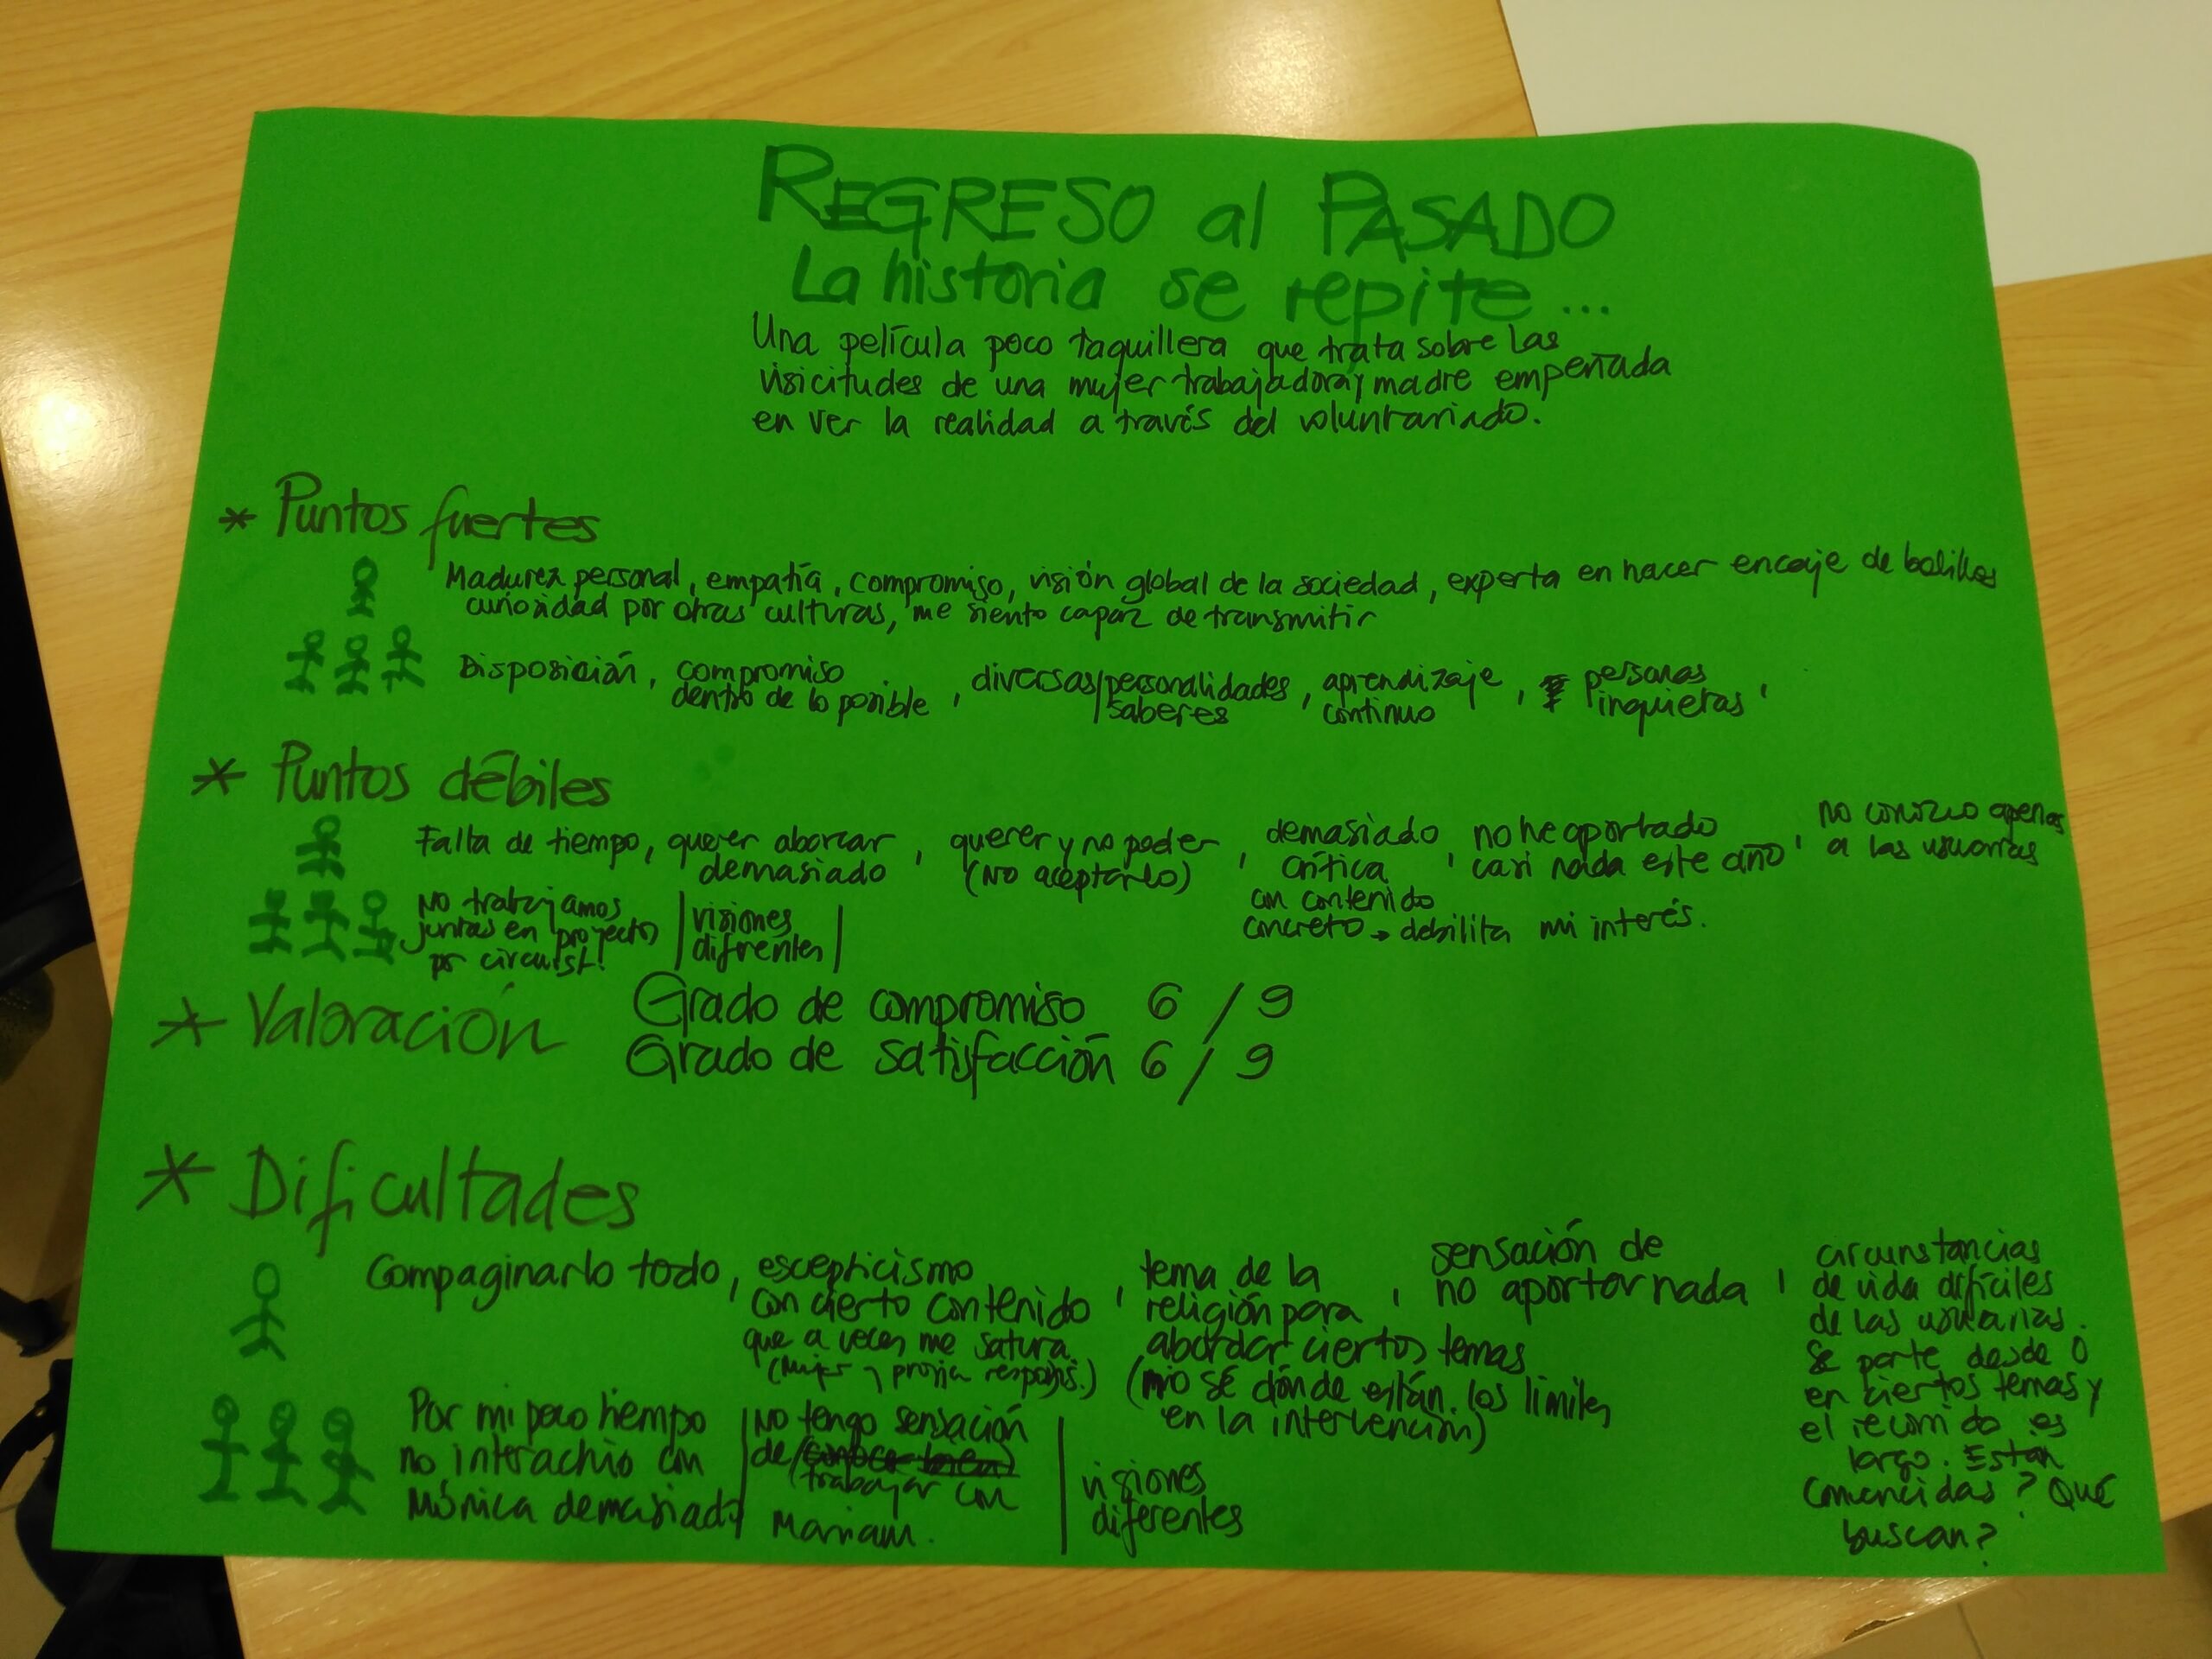 REGRESO al PASADO
La historia se repite...
Una película poco taquillera que trata sobre las
visicitudes de una mujer trabajadora y madre empeñada
en ver la realidad a través del voluntariado.
* Puntos fuertes
Madurez personal, empatía, compromiso, visión global de la sociedad, experta en hacer encaje de bolillos
curiosidad por otras culturas, me siento capaz de transmitir
Disposición, compromiso
dentro de lo posible,
diversas/personalidades,
saberes
aprendizaje,
continuo
personas
inquietas,
* Puntos débiles
Falta de tiempo, querer abarcar
demasiado,
querer y no poder,
(No aceptarlo)
demasiado
crítica,
con contenido
concreto → debilita mi interés.
no he aportado
casi nada este año,
no conozco apenas
a las usuarias
No trabajamos
juntas en proyectos
por circunst!
visiones
diferentes
* Valoración
Grado de compromiso 6 / 9
Grado de satisfacción 6 / 9
* Dificultades
Compaginarlo todo, escepticismo
con cierto contenido,
que a veces me satura
(mujer y propia respons.)
tema de la
religión para,
abordar ciertos temas
(no sé dónde están los límites
en la intervención)
sensación de
no aportar nada,
circunstancias
de vida difíciles
de las usuarias.
Se parte desde 0
en ciertos temas y
el recorrido es
largo. Están
convencidas? Qué
buscan?
Por mi poco tiempo
no interactúo con
Mónica demasiado
No tengo sensación
de
trabajar con
Mariam.
visiones
diferentes